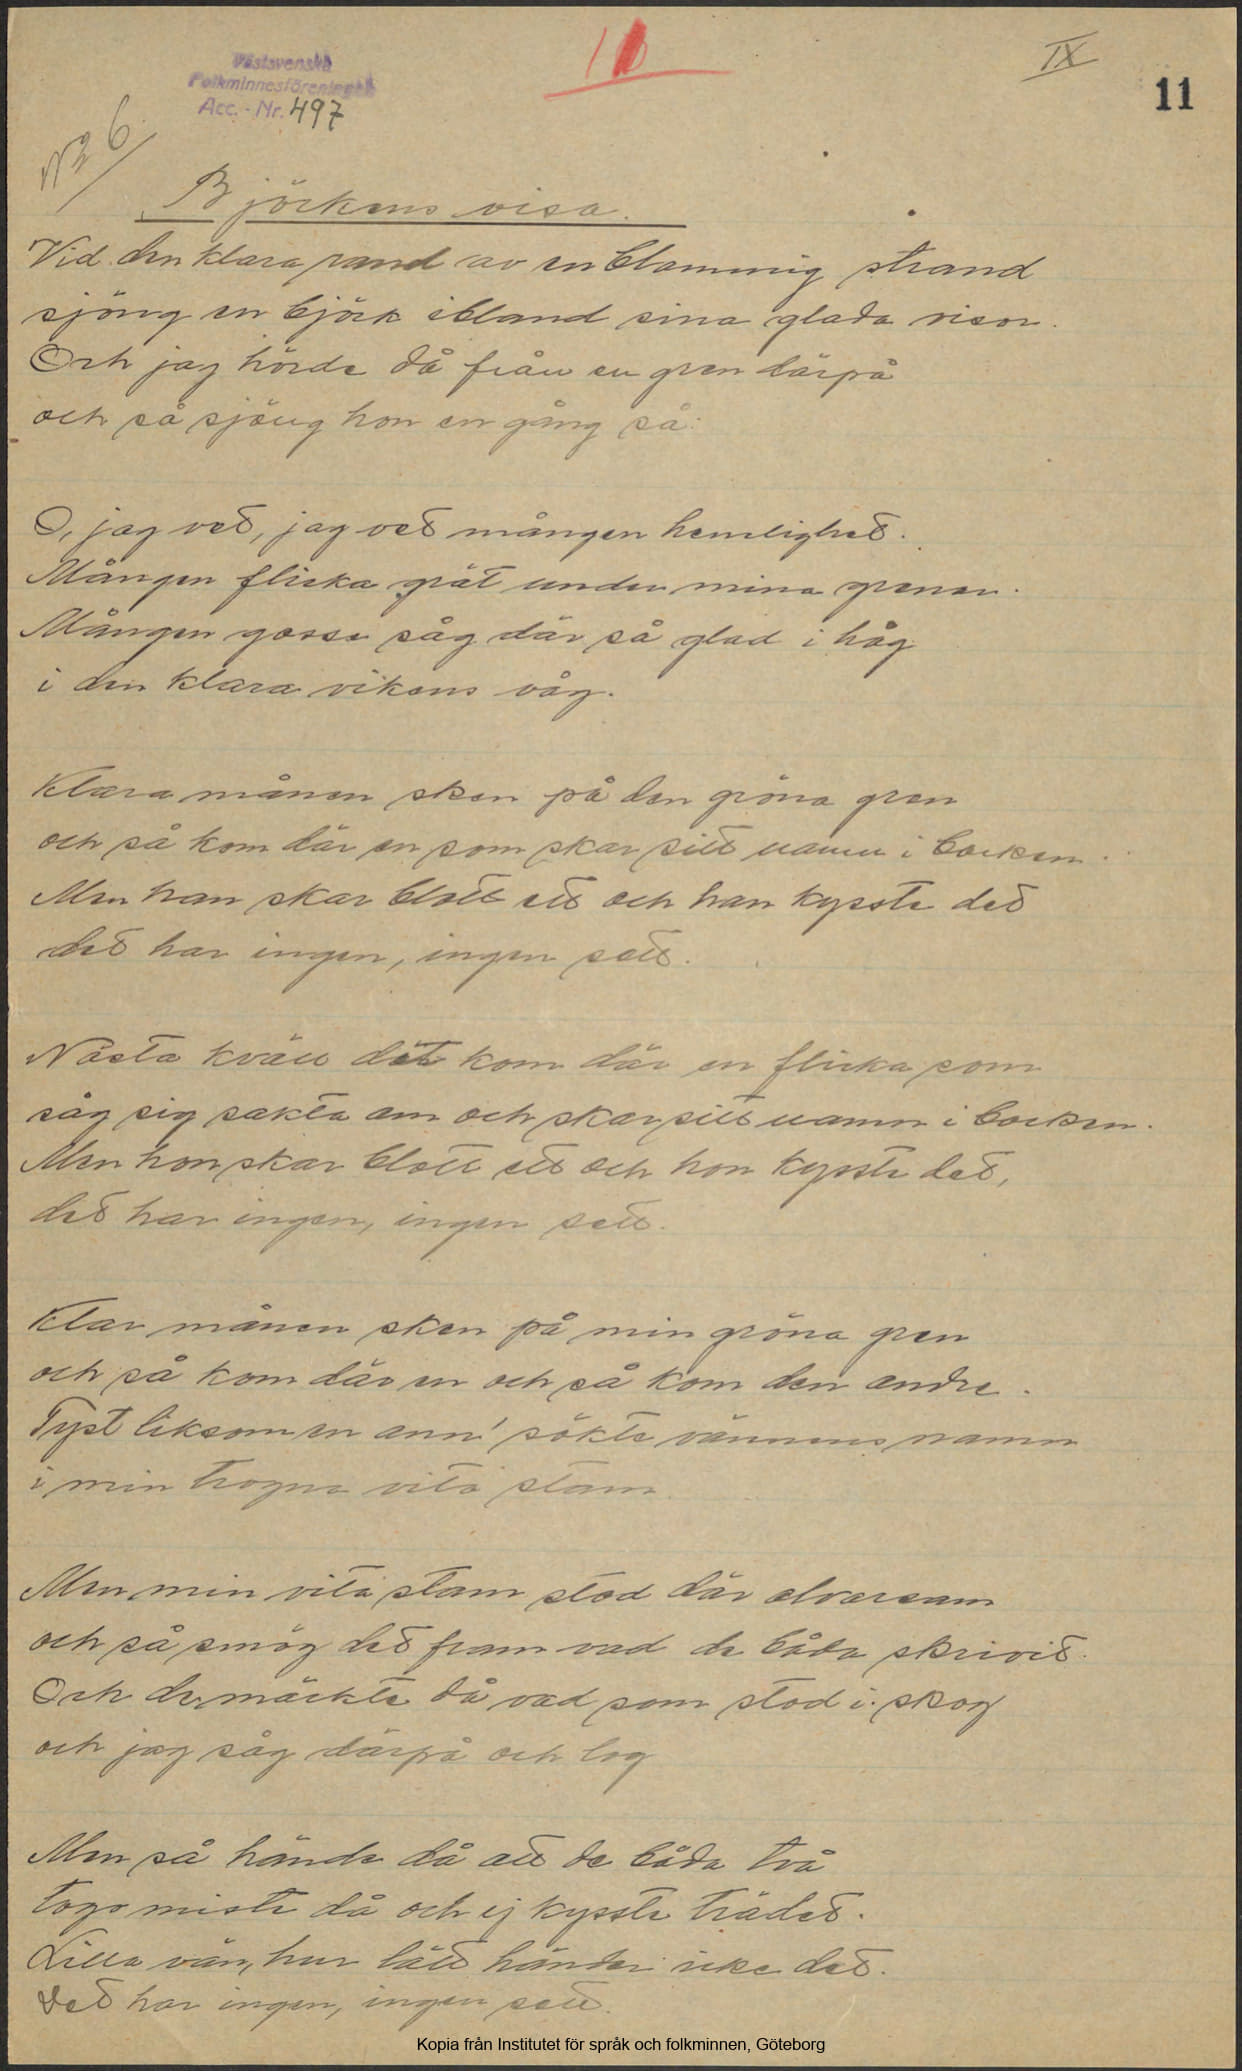 IX
11
Västsvenska
Folkminnesföreningen
Acc.-Nr. 497
No 6
Björkens visa.
Vid den klara rand av en blommig strand
sjöng en björk ibland sina glada visor.
Och jag hörde då från en gren därpå
och så sjöng hon en gång så:
O, jag vet, jag vet mången hemlighet.
Mången flicka grät under mina grenar.
Mången gosse såg där så glad i håg
i den klara vikens våg.
Klara månen sken på den gröna gren
och så kom där en som skar sitt namn i barken.
Men han skar blott ett och han kysste det
det har ingen, ingen sett.
Nästa kväll det kom där en flicka som
såg sig sakta om och skar sitt namn i barken.
Men hon skar blott ett och hon kysste det,
det har ingen, ingen sett.
Klar månen sken på min gröna gren
och så kom där en och så kom den andre.
Tyst liksom en ann' sökte vännens namn
i min trogna vita stam.
Men min vita stam stod där alvarsam
och så smög det fram vad de båda skrivit.
Och de märkte då vad som stod i skog
och jag såg därpå och log
Men så hände då att de båda två
togo miste då och ej kysste trädet.
Lilla vän, hur lätt händer icke det.
Det har ingen, ingen sett.
Kopia från Institutet för språk och folkminnen, Göteborg